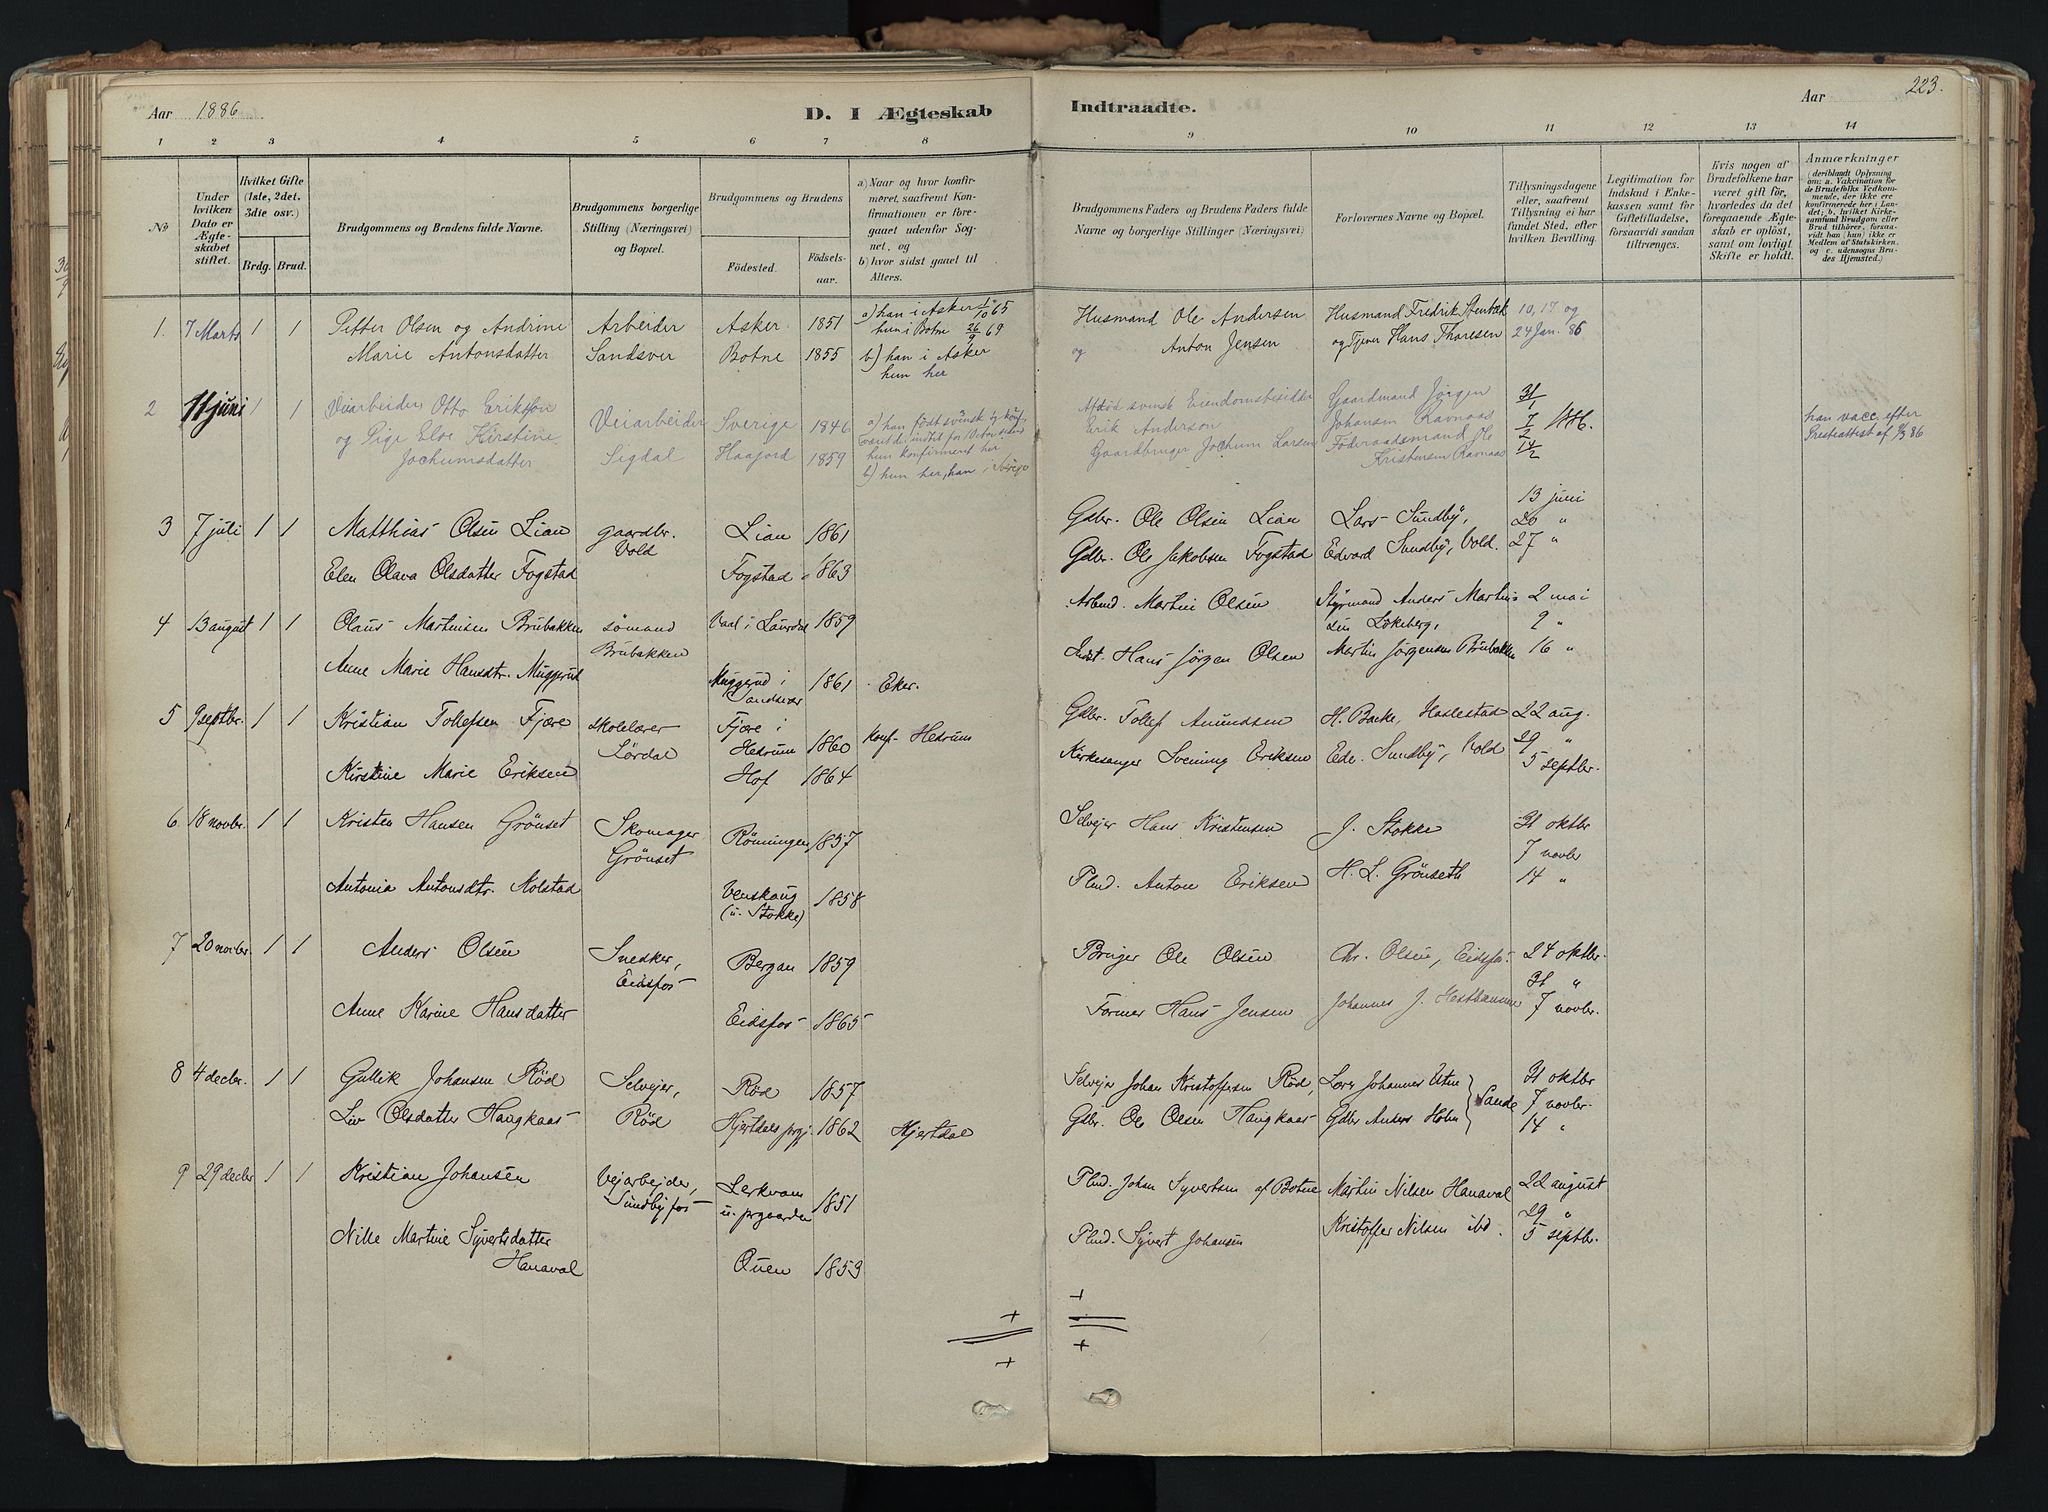 Aar 1886
D. I Ægteskab
Indtraadte.
Aar
223.
1 2 3 4 5 6 7 8 9 10 11 12 13 14
No
Under hvilken Dato er Ægteskabet stiftet.
Hvilket Gifte (1ste, 2det, 3die osv.)
Brdg. Brud.
Brudgommens og Brudens fulde Navne.
Brudgommens borgerlige Stilling (Næringsvei) og Bopæl.
Brudgommens og Brudens
Födested. Födselsaar.
a) Naar og hvor konfirmeret, saafremt Konfirmationen er foregaaet udenfor Sognet, og
b) hvor sidst gaaet til Alters.
Brudgommens Faders og Brudens Faders fulde Navne og borgerlige Stillinger (Næringsvei)
Forlovernes Navne og Bopæl.
Tillysningsdagene eller, saafremt Tillysning ei har fundet Sted, efter hvilken Bevilling.
Legitimation for Indskud i Enkekassen samt for Giftetilladelse, forsaavidt saadan tiltrænges.
Hvis nogen af Brudefolkene har været gift før, hvorledes da det foregaaende Ægteskab er oplöst, samt om lovligt Skifte er holdt.
Anmærkninger (deriblandt Oplysning om: a. Vakcination for de Brudefolks Vedkommende, der ikke ere konfirmerede her i Landet; b. hvilket Kirkesamfund Brudgom eller Brud tilhörer, forsaavidt han (hun) ikke er Medlem af Statskirken, og c. udensogns Brudes Hjemsted.)
1. 7 Marts 1 1 Petter Olsen og Andrine Arbeider Asker 1851 a) han i Asker 1/10 65
Marie Antonsdatter Sandsver Botne 1855 hun i Botne 26/9 69
b) han i Asker
hun her
Husmand Ole Andersen Husmand Fredrik Stenbæk 10, 17 og
og Anton Jensen og Tjener Hans Thoresen 24 Jan. 86
2 11 juni 1 1 Veiarbeider Otto Erikson Veiarbeider Sverige 1846 a) han født svensk og konf.
og Pige Else Kirstine Sigdal Haajord 1859
Jochumsdatter
hun konfirmeret her
b) hun her, han i Sverige
Afdød svensk Eiendomsbesidder Gaardmand Jørgen 31/1
Erik Anderson Johansen Ravnaas 7/2 1886.
Gaardbruger Jochum Larsen Föderaadsmand Ole 14/2
Kristensen Ravnaas
han vacc. efter
Presteattest af 9/3 86
3 7 juli 1 1 Matthias Olsen Lian gaardbr. Lian 1861
Vold
Elen Olava Olsdatter Fogstad Fogstad 1863
Gdbr. Ole Olsen Lian Lars Sundby, 13 juni
20 "
Gdbr. Ole Jakobsen Fogstad Edvard Sundby, Vold. 27 "
4 13 august 1 1 Claus Martinsen Brubakken sömand Vaal i Laurdal 1859
Brubakken
Anne Marie Hansdtr. Muggerud Muggerud i 1861 Eker.
Sandsvær
Arbmd. Martin Olsen Styrmand Anders Martin- 2 mai
sen Løkeberg, 9 "
Indst. Hans Jörgen Olsen Martin Jörgensen Brubakken 16 "
5 9 septbr. 1 1 Kristian Tollefsen Fjære skolelærer Fjære i
Lördal Hedrum 1860 konf. Hedrum
Kirstine Marie Eriksen Hof 1864
Gdbr. Tollef Amundsen H. Backe, Haslestad 22 aug.
29 "
Kirkesanger Svening Eriksen Edv. Sundby, Vold 5 septbr.
6 18 novbr. 1 1 Kristen Hansen Grönset Skomager Rönningen 1857
Grönset
Antonia Antonsdtr. Molstad Venskaug 1858
(u. Stokke)
Selvejer Hans Kristensen J. Stokke 31 oktbr
7 novbr
Plmd. Anton Eriksen H. L. Grönseth 14 "
7 20 novbr. 1 1 Anders Olsen Snedker, Bergan 1859
Eidsfos
Anne Karine Hansdatter Eidsfos 1865
Bruger Ole Olsen Chr. Olsen, Eidsfos 24 oktbr.
31 "
Former Hans Jensen Johannes J. Hesthammer 7 novbr.
8 4 decbr. 1 1 Gullik Johansen Röd Selvejer, Röd 1857
Liv Olsdatter Haugkaas Röd Hjertdals prgj. 1862 Hjertdal
Selvejer Johan Kristoffersen Röd, Lars Johannes Eten 31 oktbr
Sande 7 novbr.
Gdbr. Ole Olsen Haugkaas Gdbr Anders Holm 14 "
9 29 decbr 1 1 Kristian Johansen Vejarbejder, Lerkvam 1851
Sundbyfos u. prgaarden
Nille Martine Syvertsdatter
Hanaval Quen 1859
Plmd. Johan Syvertsen af Botne Martin Nilsen Hanaval 22 august
29 "
Plmd. Syvert Johansen Kristoffer Nilsen ibd. 5 septbr.